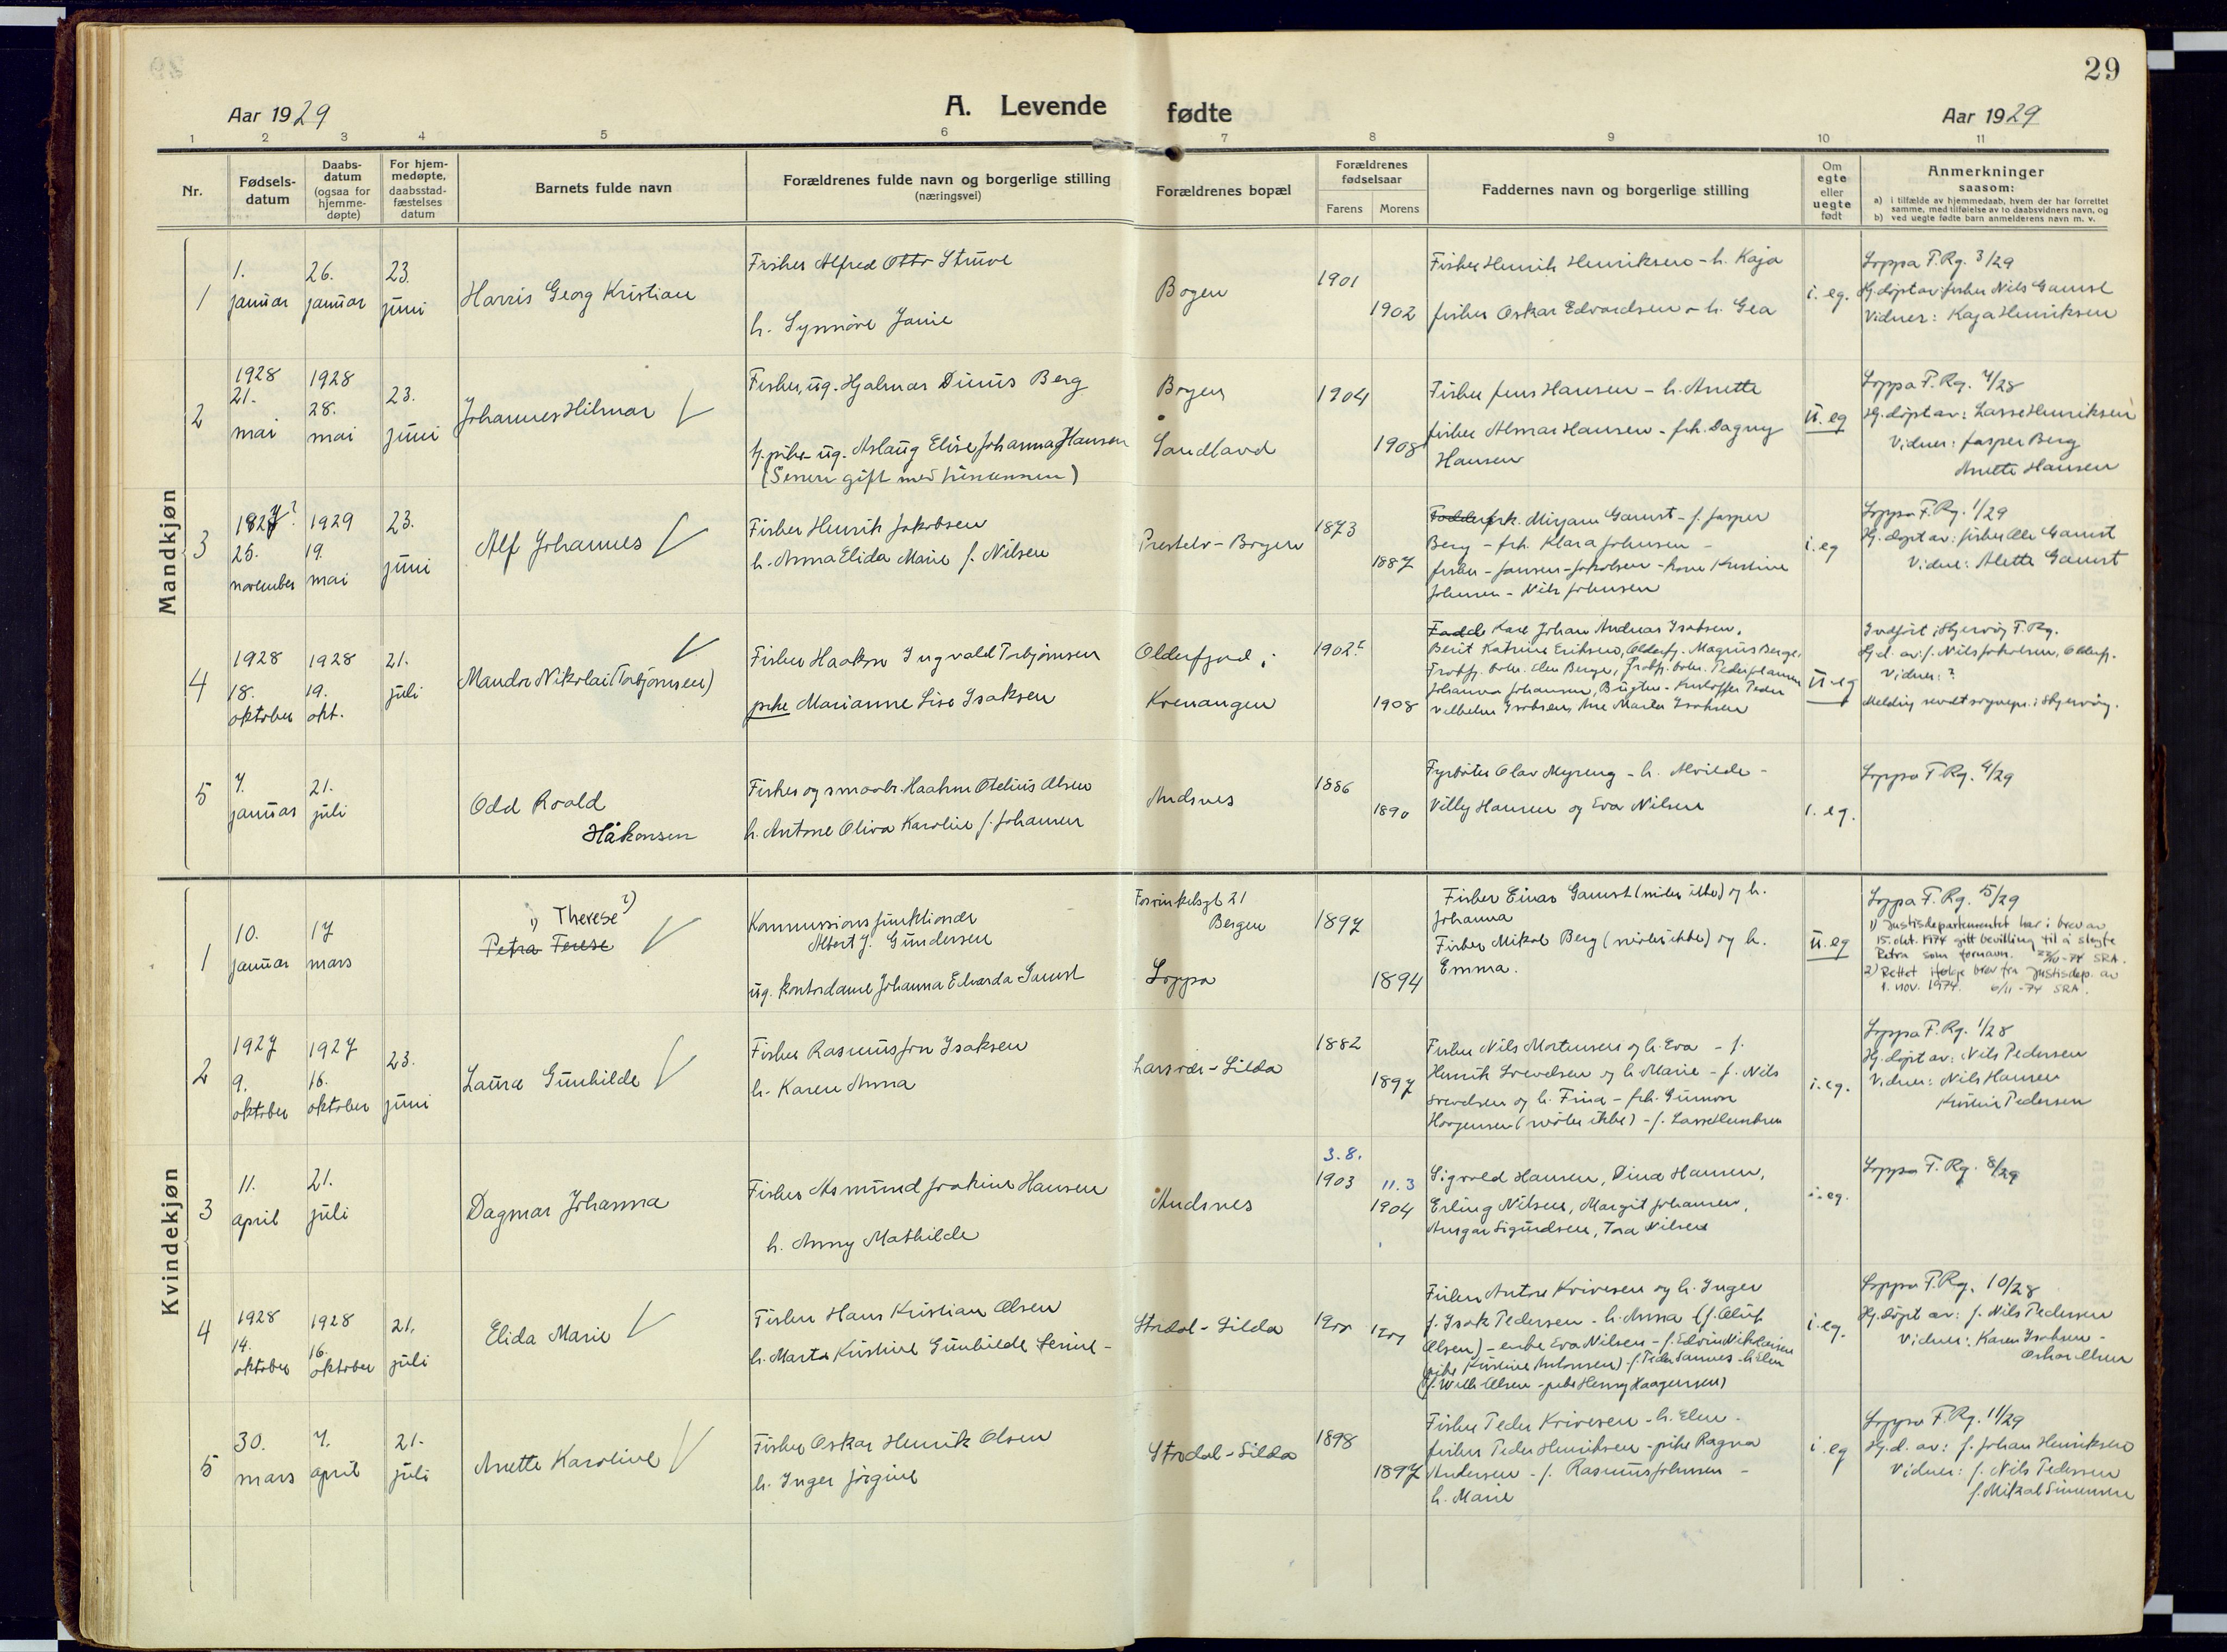 29
Aar 1929
A. Levende fødte
Aar 1929
1 2 3 4 5 6 7 8 9 10 11
Nr.
Fødsels-
datum
Daabs-
datum
(ogsaa for
hjemme-
døpte)
For hjem-
medøpte,
daabsstad-
fæstelses
datum
Barnets fulde navn
Forældrenes fulde navn og borgerlige stilling
(næringsvei)
Forældrenes bopæl
Forældrenes
fødselsaar
Farens Morens
Faddernes navn og borgerlige stilling
Om
egte
eller
uegte
født
Anmerkninger
saasom:
a) i tilfælde av hjemmedaab, hvem der har forrettet
samme, med tilføielse av to daabsvidners navn, og
b) ved uegte fødte barn anmelderens navn m. v.
Mandkjøn
1
1.
januar
26.
januar
23.
juni
Harris Georg Kristian
Fisker Alfred Otto Struve
h. Synnøve Janie
Bogen
1901
1902
Fisker Henrik Henriksen - h. Kaja
fisker Oskar Edvardsen - h. Gea
i. eg.
Loppa F.Rg. 3/29
Hj.døpt av: fisker Nils Gamst
Vidner: Kaja Henriksen
2
1928
21.
mai
1928
28.
mai
23.
juni
Johannes Hilmar
Fisker, ug. Hjalmar Dinus Berg
tj.pike ug. Aslaug Elise Johanna Hansen
(Senere gift med hinannen)
Bogen
Sandland
1904
1908
Fisker Jens Hansen - h. Anette
fisker Almar Hansen - frk. Dagny
Hansen
u. eg
Loppa F.Rg. 4/28
Hj.døpt av: Lasse Henriksen
Vidner: Jasper Berg
Anette Hansen
3
1927?
25.
november
1929
19.
mai
23.
juni
Alf Johannes
Fisker Henrik Jakobsen
h. Anna Elida Marie f. Nilsen
Prestelv - Bogen
1873
1887
frk. Mirjam Gamst - f. Jasper
Berg - frk. Klara Johnsen -
fisker - Jansen - Jakobsen - kone Kristine
Johnsen - Nils Johnsen
i. eg
Loppa F.Rg. 1/29
Hj.døpt av: fisker Ole Gamst
Vidne: Alette Gamst
4
1928
18.
oktober
1928
19.
okt.
21.
juli
Mandor Nikolai (Torbjørnsen)
Fisker Haakon Ingvald Torbjørnsen
pike Marianne Lise Isaksen
Olderfjord i
Kvænangen
1902?
1908
Karl Johan Andreas Isaksen,
Berit Katrine Eriksen, Olderfj. Magnus Berge,
Johanna Johansen, Kristoffer Peder
Vilhelm Isaksen, Ane Marta Isaksen
u. eg
Indført i Skjervøy F.Rg.
Hj.d. av: f. Nils Jakobsen, Olderfj.
Vidner: ?
Melding sendt sognepr. i Skjervøy.
5
7.
januar
21.
juli
Odd Roald
Håkonsen
Fisker og smaabr. Haakon Otelius Olsen
h. Antone Oliva Karoline f. Johansen
Andsnes
1886
1890
Fyrbøter Olav Myreng - h. Alvilde -
Villy Hansen og Eva Nilsen
i. eg.
Loppa F.Rg. 4/29
Kvindekjøn
1
10.
januar
17
mars
1) Therese 2)
Petra Terese
Kommissions funktionær
Albert J. Gundersen
ug. kontordame Johanna Edvarda Gamst
21
Bergen
Loppa
1897
1894
Fisker Einar Gamst (møter ikke) og h.
Johanna
Fisker Mikal Berg (møter ikke) og h.
Emma.
u. eg
Loppa F. Rg. 5/29
1) Justisdepartementet har i brev av
15. okt. 1974 gitt bevilling til å sløyfe
Petra som fornavn. -74 SRA.
2) Rettet ifølge brev fra Justisdep. av
1. nov. 1974. 6/11-74 SRA.
2
1927
9.
oktober
1927
16.
oktober
23.
juni
Laura Gunhilde
Fisker Rasmus Jon Isaksen
h. Karen Anna
Larsvær - Silda
1882
1897
Fisker Nils Mortensen og h. Eva - f.
Henrik Svendsen og h. Marie - f. Nils
Svendsen og h. Fina - frk. Gunvor
Haagensen (møter ikke) - f. Lasse Henriksen
i. eg.
Loppa F.Rg. 1/28
Hj.døpt av: Nils Pedersen
Vidner: Nils Hansen
Kristine Pedersen
3
11.
april
21.
juli
Dagmar Johanna
Fisker Asmund Joakim Hansen
h. Anny Mathilde
Andsnes
3.8.
1903
11.3
1904
Sigvald Hansen, Dina Hansen,
Erling Nilsen, Margit Johansen,
Ansgar Sigurdsen, Tora Nilsen
i. eg.
Loppa F. Rg. 8/29
4
1928
14.
oktober
1928
16.
oktober
21.
juli
Elida Marie
Fisker Hans Kristian Olsen
h. Marta Kristine Gunhilde Serine -
Stordal - Silda
Fisker Anton Kriversen og h. Inger
f. Isak Pedersen - h. Anna (f. Oluf
Olsen) - enke Eva Nilsen - f. Edvin Nikolaisen
(pike Kristine Antonsen) - f. Peder Samues - h. Elen
(f. Wilh. Olsen - pike Henny Haagensen)
i. eg.
Loppa F.Rg. 10/28
Hj.døpt av: f. Nils Pedersen
Vidner: Karen Isaksen -
Oskar Olsen
5
30.
mars
7.
april
21.
juli
Anette Karoline
Fisker Oskar Henrik Olsen
h. Inger Jørgine
Stordal - Silda
1898
1897
Fisker Peder Kriversen - h. Elen -
fisker Peder Henriksen - pike Ragna
Andersen - f. Rasmus Johnsen -
h. Marie
i. eg
Loppa F.Rg. 11/29
Hj.d. av: f. Johan Henriksen
Vidner: f. Nils Pedersen
f. Mikal Simonsen